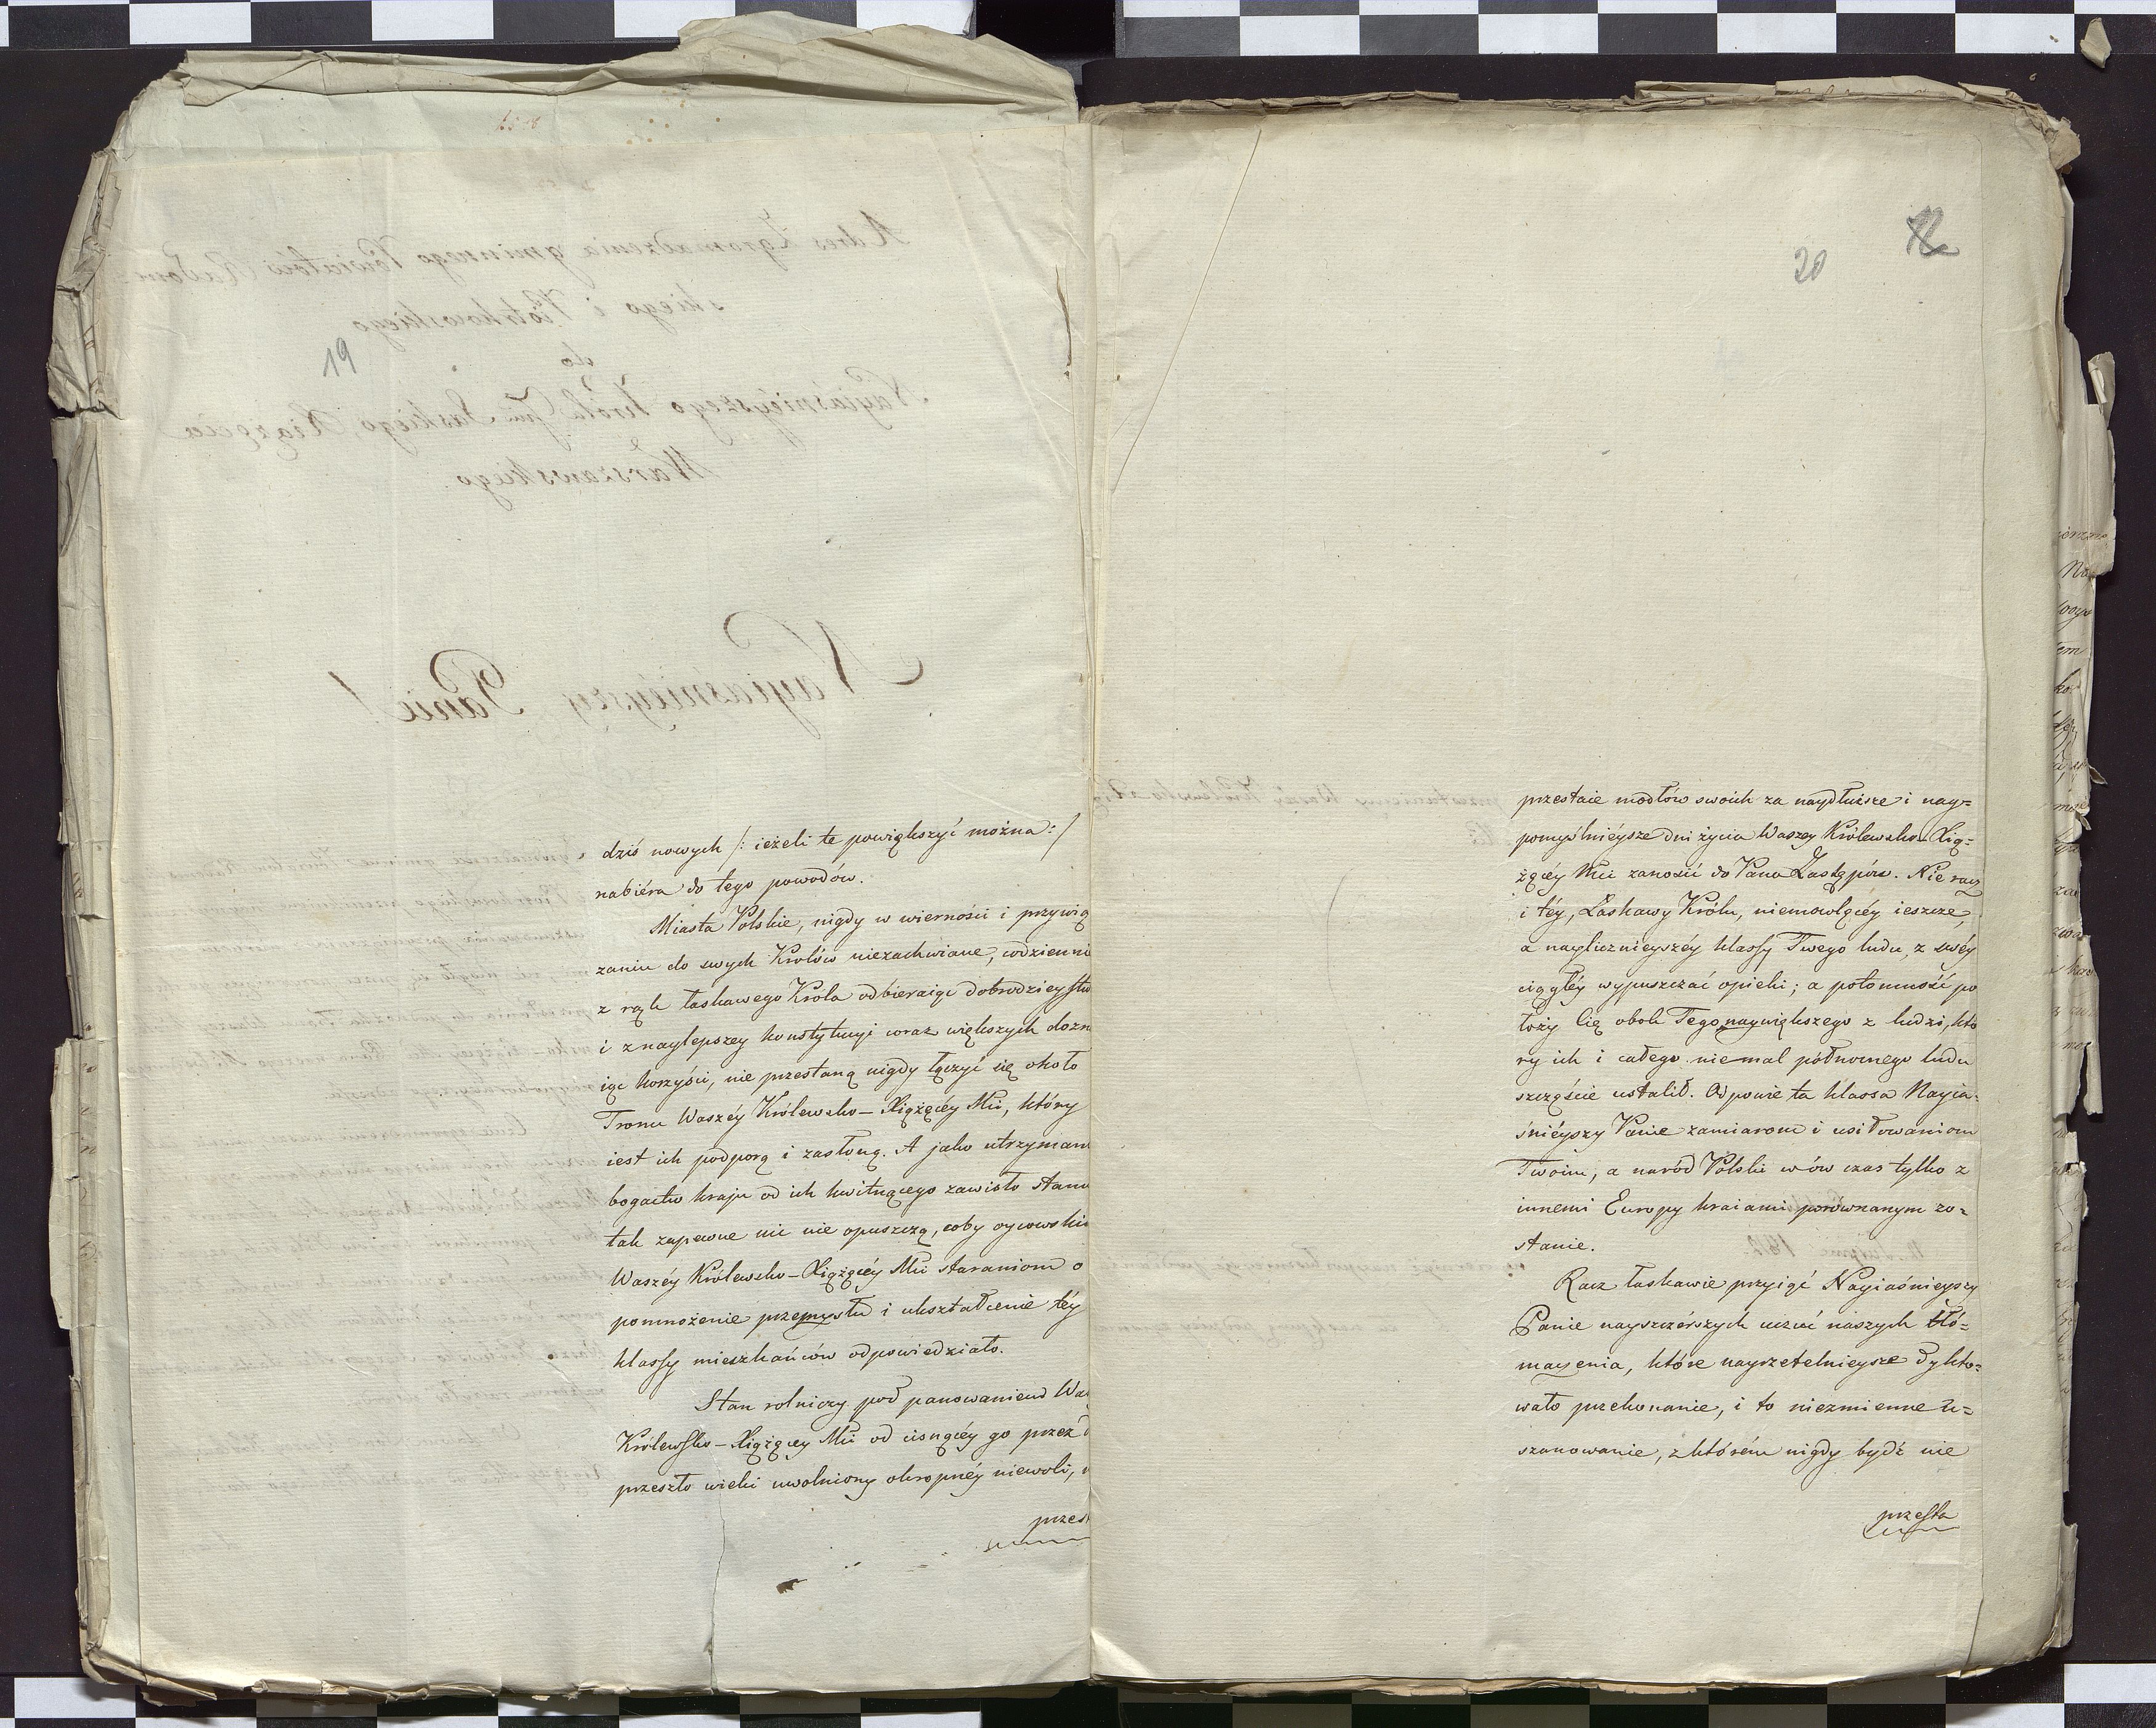 19
dziś nowych /: ieżeli te powiększyć można :/
nabiéra do tego powodów.
Miasta Polskie, nigdy w wierności i przywią
zaniu do swych Królów niezachwiane, codzienni
z rąk łaskawego Króla odbieraiąc dobrodzieystw
i z naylepszey konstytucyi coraz większych dozn
iąc korzyści, nie przestaną nigdy łączyć się około
Tronu Waszéy Królewsko-Xiążęcéy Mci, który
iest ich podporą i zasłoną. A jako utrzyman
bogactw kraju od ich kwitnącego zawisło stanu
tak zapewne nic nie opuszczą, coby oycowski
Waszéy Królewsko-Xiążęcéy Mci staraniom o
pomnożenie przemysłu i ukształcenie téy
klassy mieszkańców odpowiedziało.
Stan rolniczy pod panowaniem Wa
Królewsko-Xiążęcey Mci od cisnącéy go przez
przeszło wieki uwolniony okropnéy niewoli,
przest
20
12
przestaie modłów swoich za naydłuższe i nay=
pomyślniéysze dni życia Waszey Królewsko-Xią=
żęcéy Mci zanosić do Pana Zastępów. Nie racz
i téy, Łaskawy Królu, niemowlęcéy ieszcze,
a nayliczniéyszéy klassy Twego ludu, z swéy
ciągłéy wypuszczać opieki; a potomność po
łoży Cię obok Tego naywiększego z ludzi, któ
ry ich i całego niemal północnego ludu
szczęście ustalił. Odpowie ta klassa Nayia=
śniéyszy Panie zamiarom i usiłowaniom
Twoim, a naród Polski wów czas tylko z
innemi Europy kraiami porównanym zo=
stanie.
Racz łaskawie przyiąć Nayiaśnieyszy
Panie nayszczérszych uczuć naszych tłó=
maczenia, które nayrzetelnieysze dykto=
wało przekonanie, i to niezmienne u=
szanowanie, z którém nigdy bydź nie
przesta